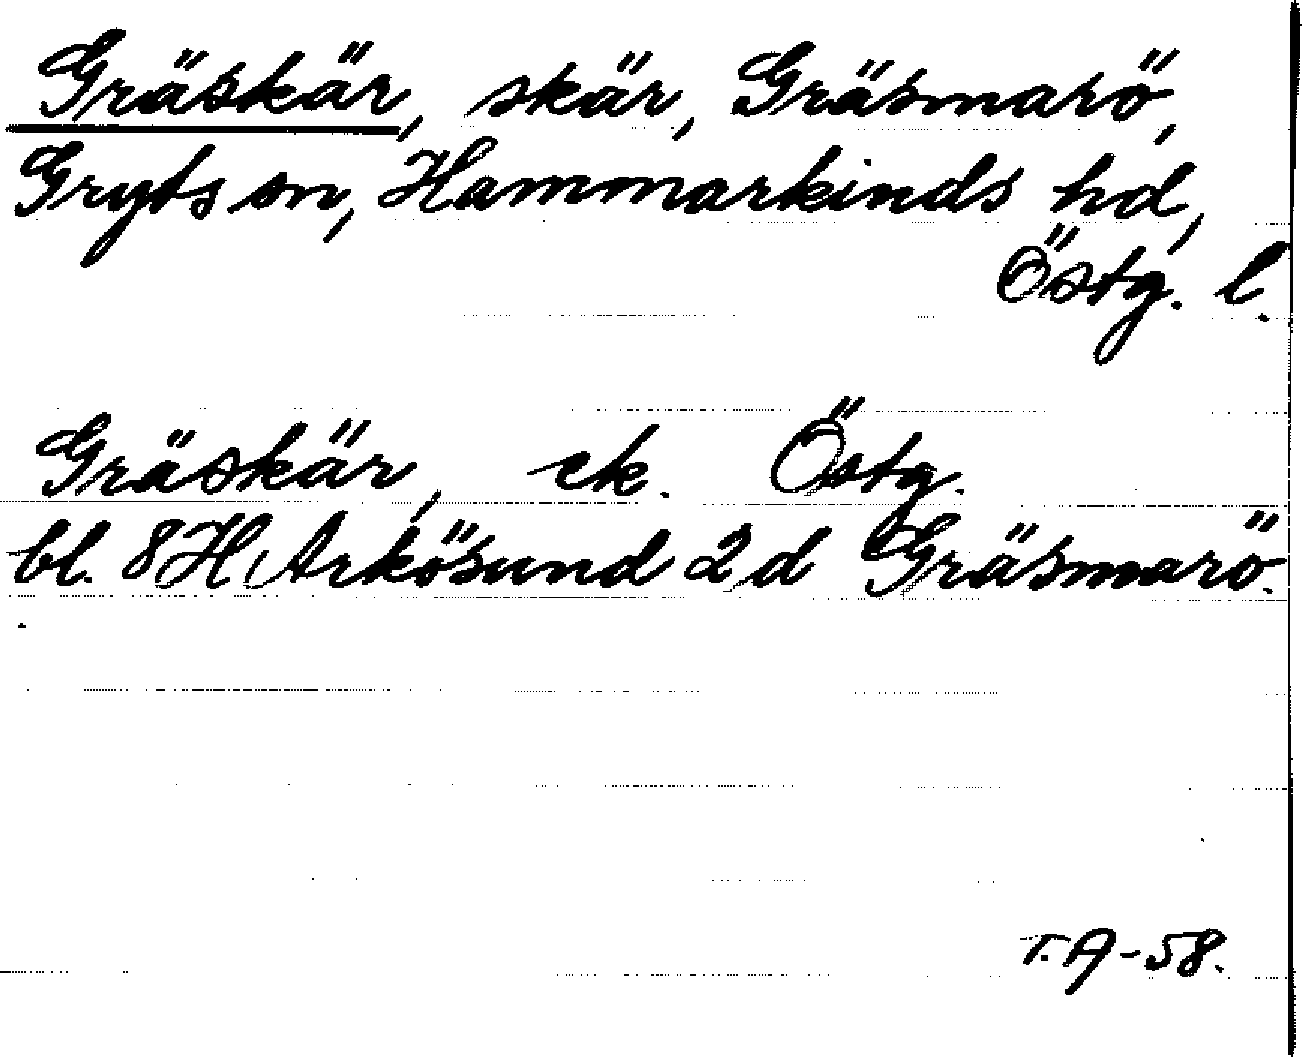 Gräskär, skär, Gräsmarö,
Gryts sn, Hammarkinds hd,
Östg. l.
Gräskär, ek. Östg.
bl. 8H Arkösund 2 d Gräsmarö.
T.A-58.